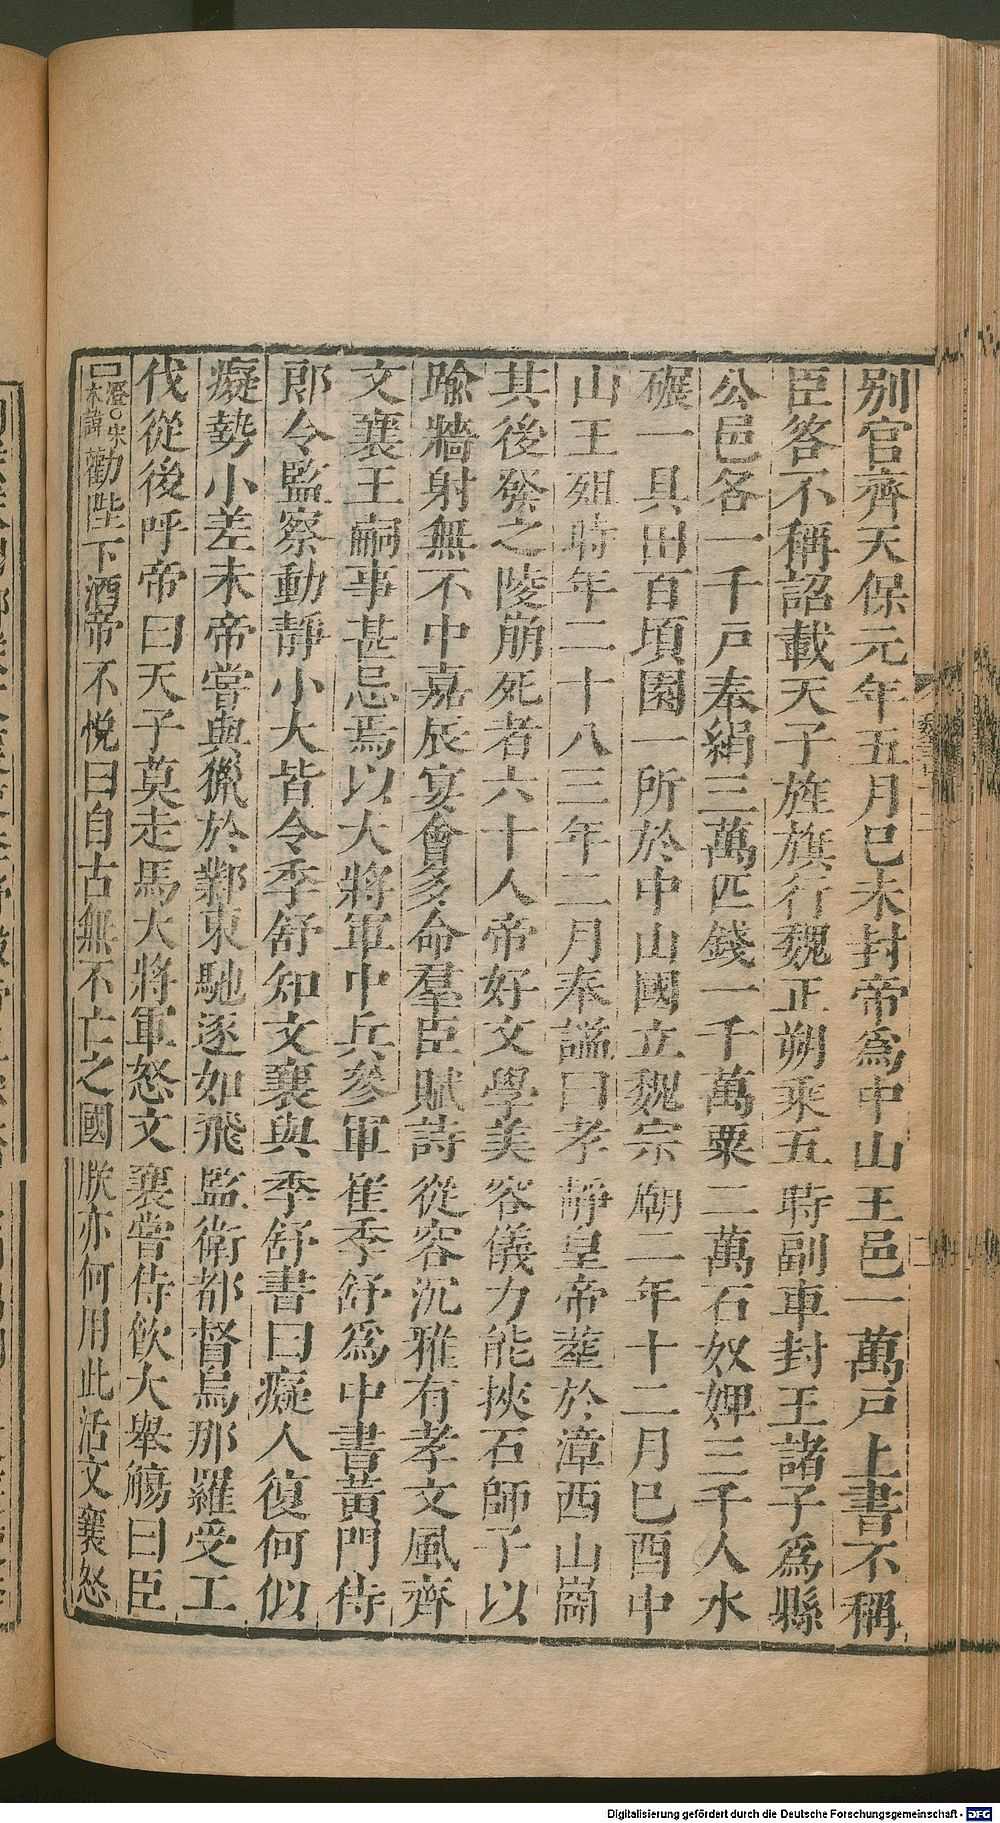 别官齊天保元年五月巳未封帝爲中山王邑一萬戸上書不稱
臣答不稱詔載天子旌旗行魏正朔乘五時副車封王諸子爲縣
公邑各一千戸奉絹三萬匹錢一千萬粟二萬石奴婢三千人水
碾一具田百頃園一所於中山國立魏宗廟二年十二月巳酉中
山王殂時年二十八三年二月奉謚曰孝靜皇帝葬於漳西山崗
其後發之陵崩死者六十人帝好文學美容儀力能挾石師子以
踰牆射無不中嘉辰宴會多命羣臣賦詩從容沉雅有孝文風齊
文襄王嗣事甚忌焉以大將軍中兵參軍崔季舒爲中書黄門侍
郎令監察動靜小大皆令季舒知文襄與季舒書曰癡人復何似
癡勢小差未帝嘗與獵於鄴東馳逐如飛監衛都督烏那羅受工
伐從後呼帝曰天子莫走馬大將軍怒文襄嘗侍飲大舉觴曰臣
澄○宋本諱勸陛下酒帝不悅曰自古無不亡之國朕亦何用此活文襄怒
Digitalisierung gefördert durch die Deutsche Forschungsgemeinschaft - DFG